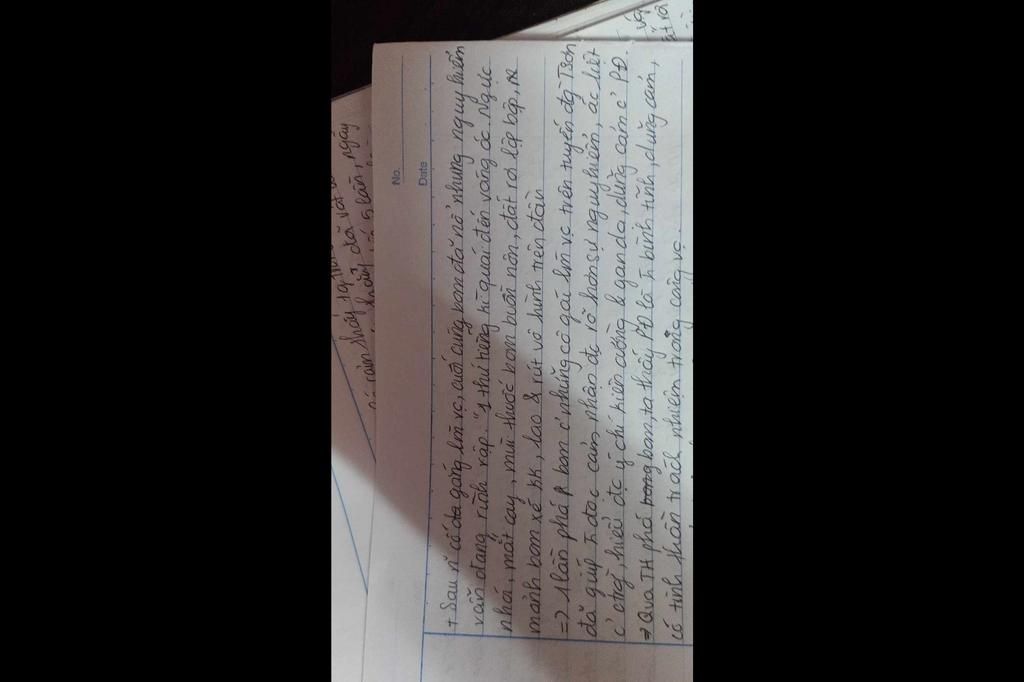 No.
Date
+ Sau n~ cố đa gắng lm vc, cuối cùng bom đã nổ nhưng nguy hiểm
vẫn đang rình rập. "1 thứ tiếng kì quái đến váng óc. Ngực
nhói, mắt cay, mùi thuốc bom buồn nôn, đất rơi lộp bộp,
mảnh bom xé kk, lao & rít vô hình trên đầu
=> 1 lần phá bom c' những cô gái lm vc trên tuyến đg TSơn
đã giúp đọc cảm nhận đc rõ hơn sự nguy hiểm, ác liệt
c' ctrg, hiểu đc ý chí kiên cường & gan dạ, dũng cảm c' PĐ.
=> Qua TH phá bom, ta thấy PĐ là bình tĩnh, dũng cảm,
có tinh thần trách nhiệm trong công vc.
cảm thấy
đã vất
5 lần, ngày
và